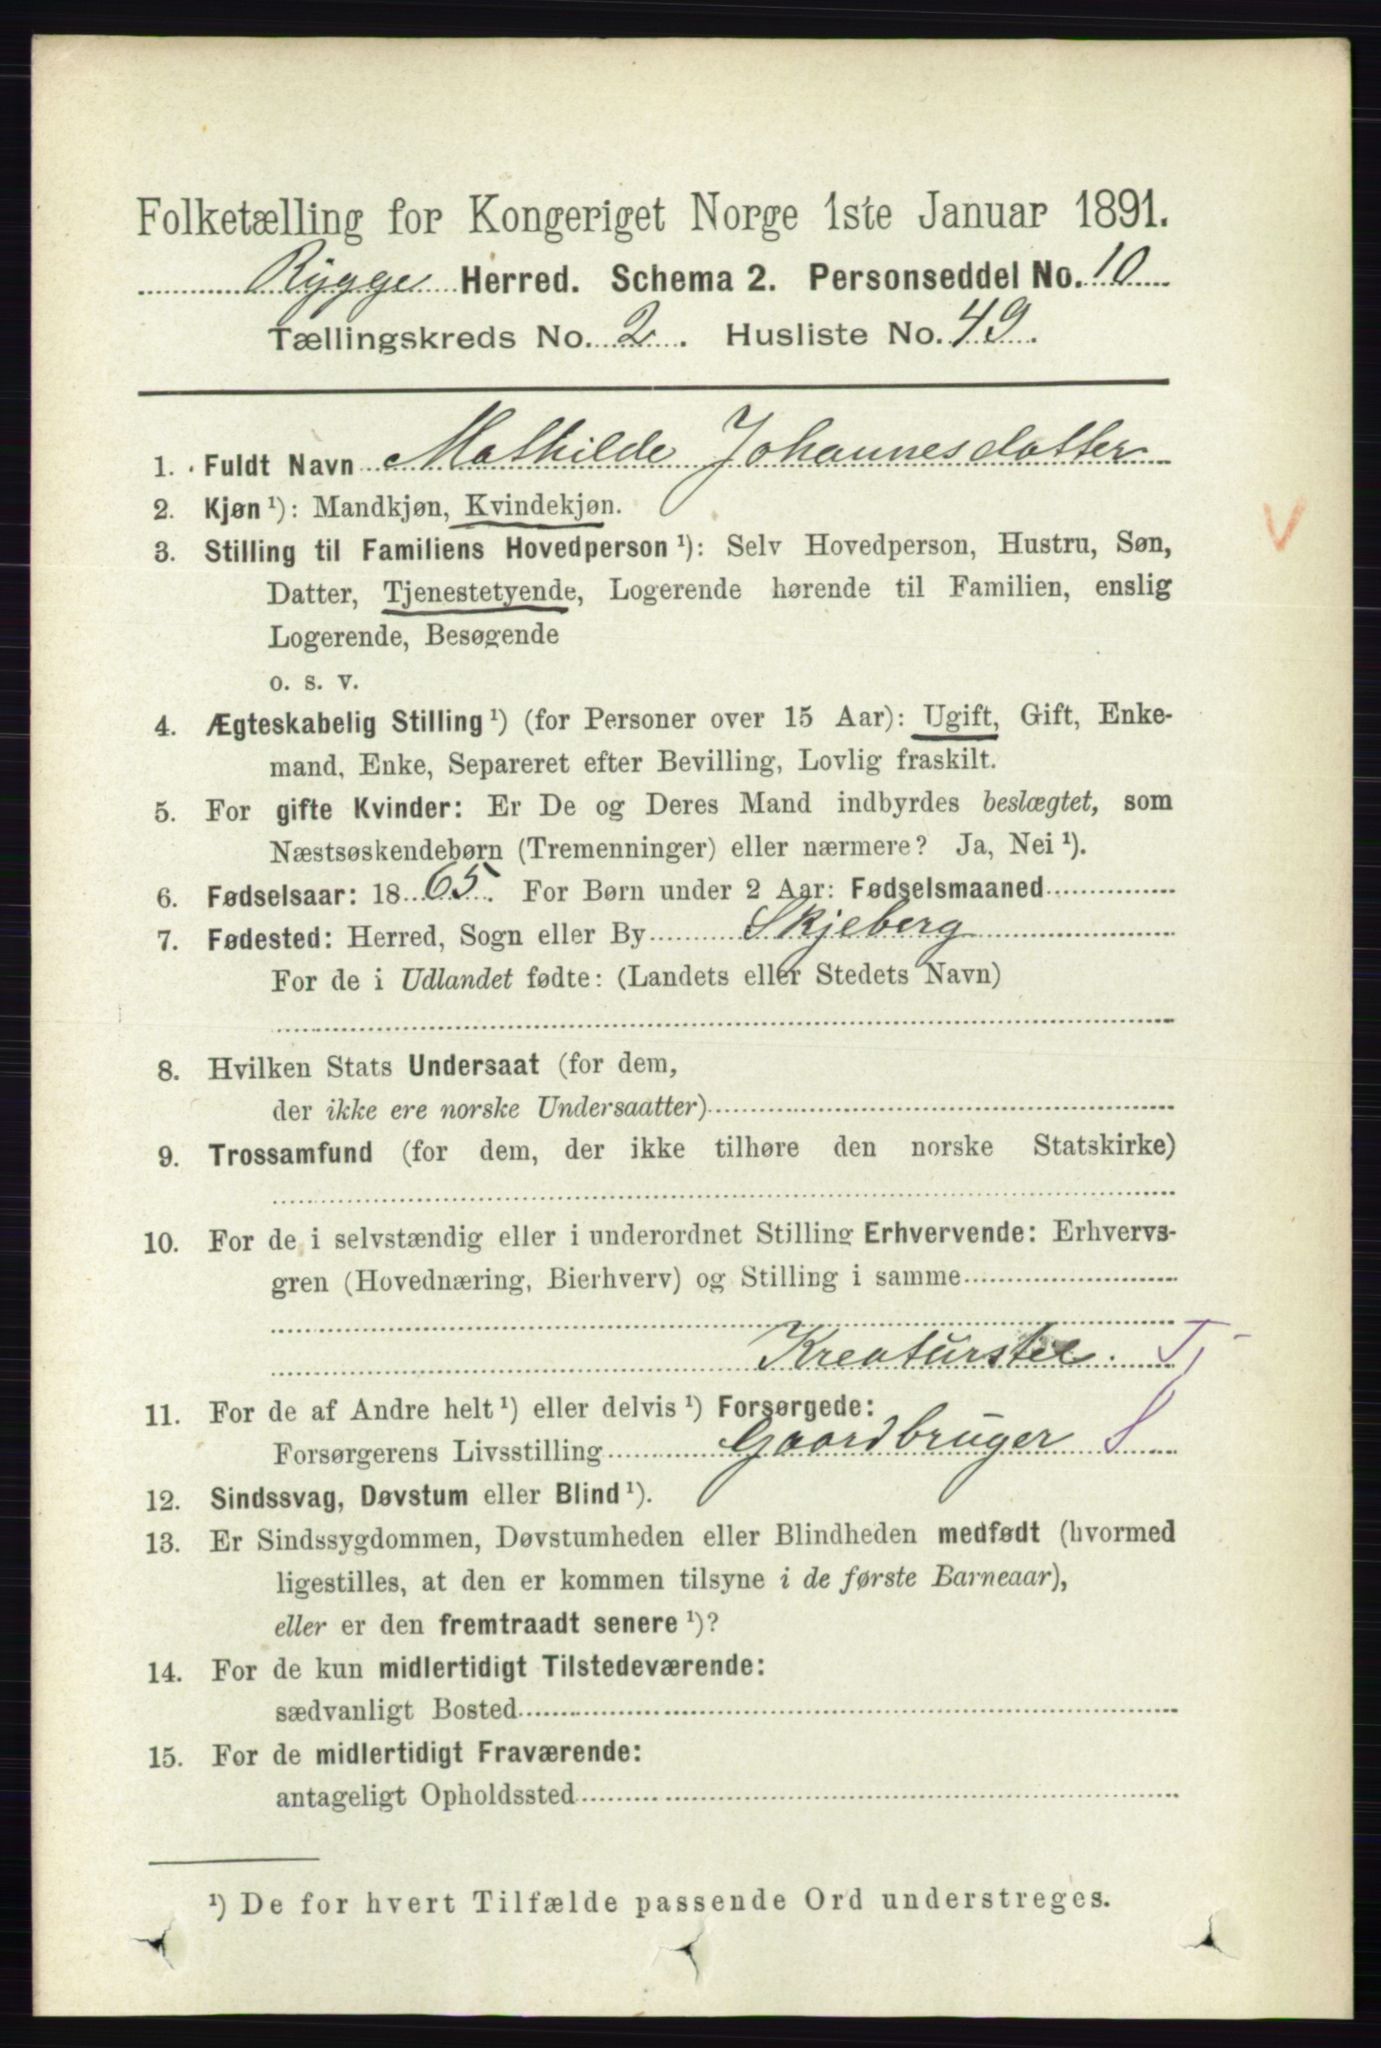 Folketælling for Kongeriget Norge 1ste Januar 1891.
Rygge Herred. Schema 2. Personseddel No. 10
Tællingskreds No. 2. Husliste No. 49.
1. Fuldt Navn Mathilde Johannesdatter
2. Kjøn ¹): Mandkjøn, Kvindekjøn.
3. Stilling til Familiens Hovedperson ¹): Selv Hovedperson, Hustru, Søn,
Datter, Tjenestetyende, Logerende hørende til Familien, enslig
Logerende, Besøgende
o. s. v.
4. Ægteskabelig Stilling ¹) (for Personer over 15 Aar): Ugift, Gift, Enke-
mand, Enke, Separeret efter Bevilling, Lovlig fraskilt.
5. For gifte Kvinder: Er De og Deres Mand indbyrdes beslægtet, som
Næstsøskendebørn (Tremenninger) eller nærmere? Ja, Nei ¹).
6. Fødselsaar: 1865. For Børn under 2 Aar: Fødselsmaaned
7. Fødested: Herred, Sogn eller By Skjeberg
For de i Udlandet fødte: (Landets eller Stedets Navn)
8. Hvilken Stats Undersaat (for dem,
der ikke ere norske Undersaatter)
9. Trossamfund (for dem, der ikke tilhøre den norske Statskirke)
10. For de i selvstændig eller i underordnet Stilling Erhvervende: Erhvervs-
gren (Hovednæring, Bierhverv) og Stilling i samme
Kreaturstel. Tj
11. For de af Andre helt ¹) eller delvis ¹) Forsørgede:
Forsørgerens Livsstilling Gaardbruger S
12. Sindssvag, Døvstum eller Blind ¹).
13. Er Sindssygdommen, Døvstumheden eller Blindheden medfødt (hvormed
ligestilles, at den er kommen tilsyne i de første Barneaar),
eller er den fremtraadt senere ¹)?
14. For de kun midlertidigt Tilstedeværende:
sædvanligt Bosted
15. For de midlertidigt Fraværende:
antageligt Opholdssted
¹) De for hvert Tilfælde passende Ord understreges.